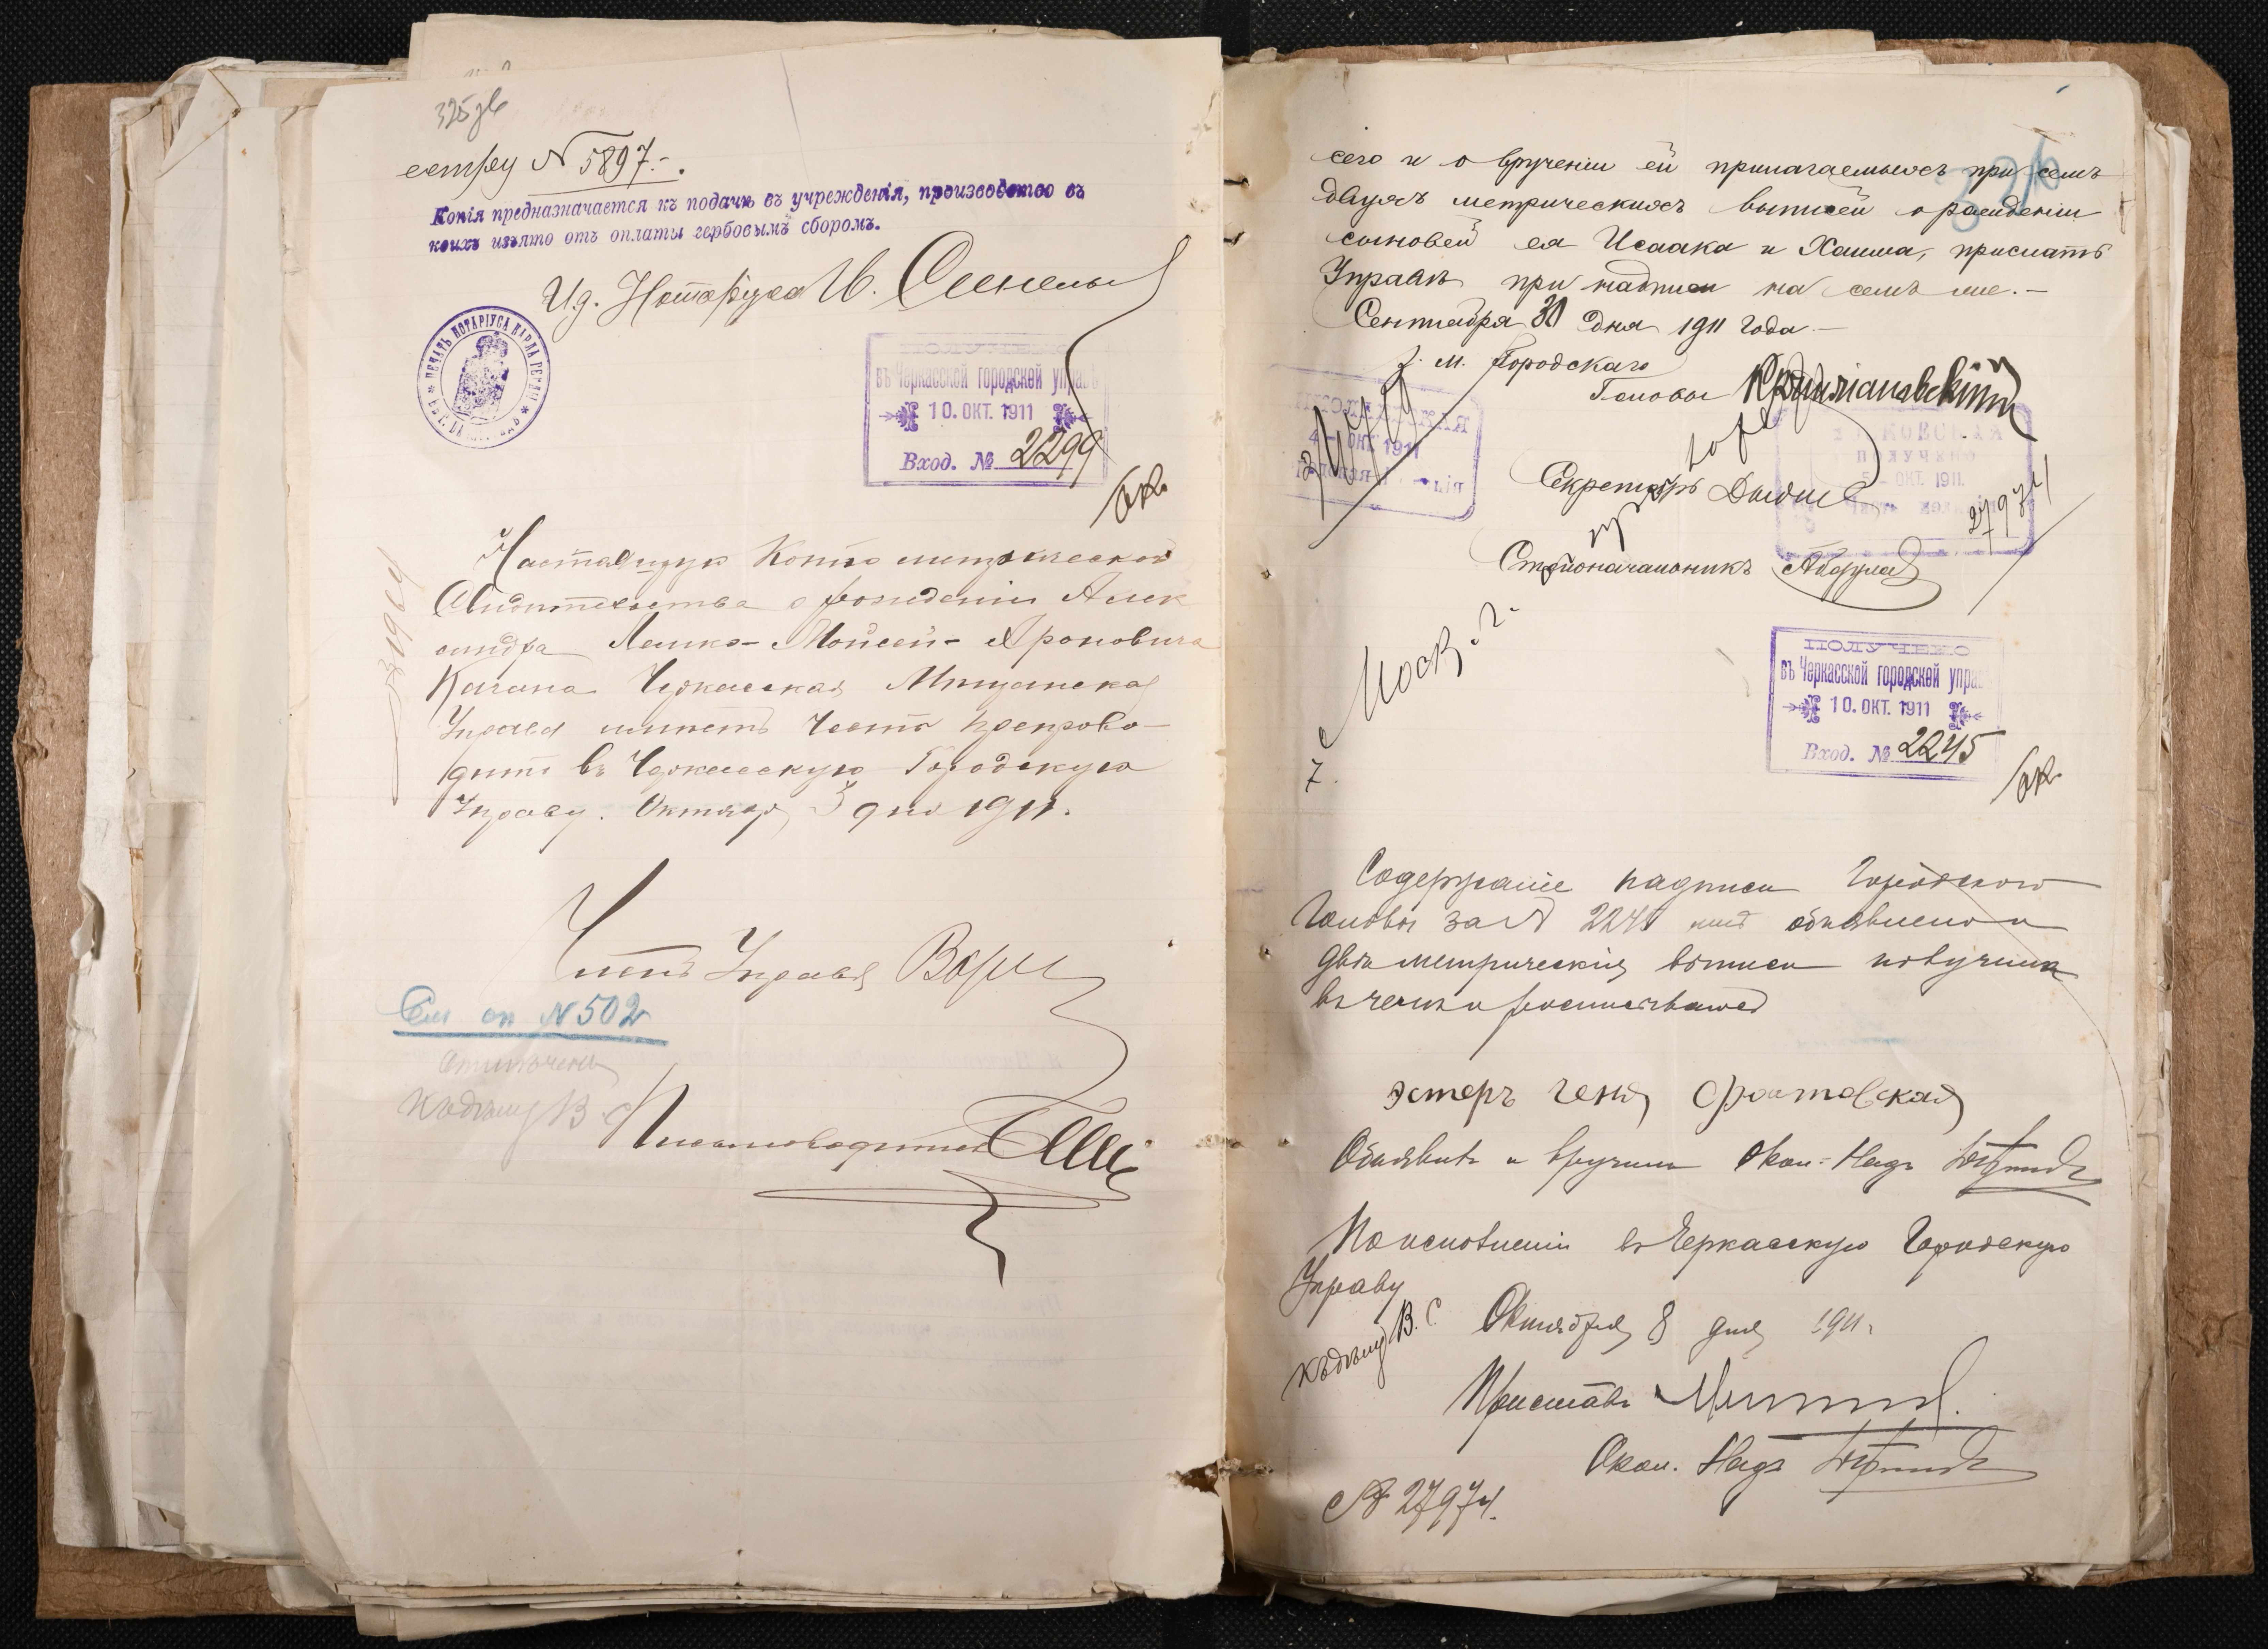 325 зв
естру № 5897.-
Копія предназначается къ подачѣ въ учрежденія, производство въ
коихъ изъято отъ оплаты гербовымъ сборомъ.
И.д. Нотаріуса И.
ПЕЧАТЬ НОТАРІУСА КАРЛА
въ Черкасской городской управѣ
10. ОКТ. 1911
Вход. № 2299
Настоящую Копію метрическаго
Свидѣтельства о рожденіи Алек
сандра Лейко-Мойсей-Ароновича
Кагана Черкасская Мѣщанская
Управа имѣетъ честь препрово-
дить въ Черкасскую Городскую
Управу. Октября 5 дня 1911.
Членъ Управы
№ 502
Къ дѣлу В. С.
Письмоводитель
сего и о врученіи ей прилагаемыхъ при семъ
двухъ метрическихъ выписей о рожденіи
сыновей ея Исаака и Хаима, прислать
Управѣ при надписи на семъ же.-
Сентября 30 дня 1911 года.-
З. м. Городского
Головы
4 - ОКТ. 1911
ПОЛУЧЕНО
5 - ОКТ. 1911.
27974
Секретарь
Столоначальникъ
ПОЛУЧЕНО
въ Черкасской городской управѣ
10. ОКТ. 1911
Вход. № 2245
Содержаніе надписи Городского
Головы за № 2245 мнѣ объявлено и
двѣ метрическія выписи получила
въ чемъ и росписываюсь
Эстеръ Геня
Объявилъ и вручилъ Окол. Надз.
По исполненіи въ Черкасскую Городскую
Управу
Къ дѣлу В. С.
Октября 8 дня 1911 г.
Приставъ
Окол. Надз.
№ 27974.